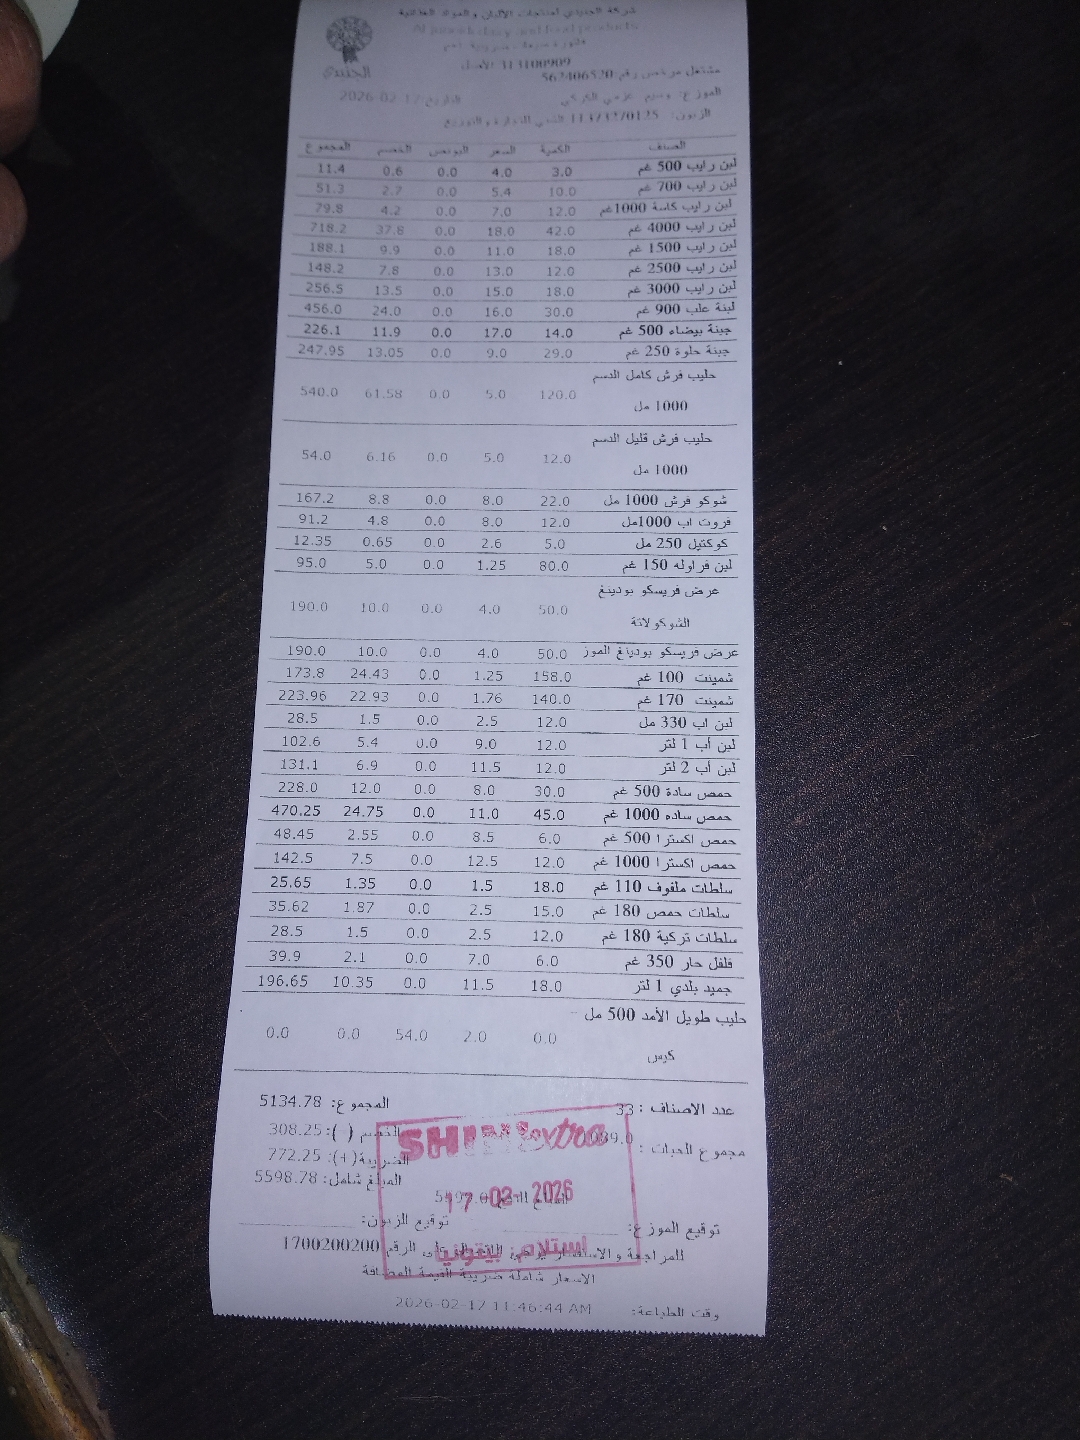 شركة الجنيدي لمنتجات الألبان و المواد الغذائية
Al juneidi dairy and food products
فاتورة مبيعات ضريبية
313100909 الأصل
مشتغل مرخص رقم: 562406520
الجنيدي
الموزع: وسيم عزمي الكركي
التاريخ: 2026-02-17
الزبون: 11373270125 للتجارة و التوزيع
الصنف الكمية السعر البونص الخصم المجموع
لبن رايب 500 غم 3.0 4.0 0.0 0.6 11.4
لبن رايب 700 غم 10.0 5.4 0.0 2.7 51.3
لبن رايب كاسة 1000غم 12.0 7.0 0.0 4.2 79.8
لبن رايب 4000 غم 42.0 18.0 0.0 37.8 718.2
لبن رايب 1500 غم 18.0 11.0 0.0 9.9 188.1
لبن رايب 2500 غم 12.0 13.0 0.0 7.8 148.2
لبن رايب 3000 غم 18.0 15.0 0.0 13.5 256.5
لبنة علب 900 غم 30.0 16.0 0.0 24.0 456.0
جبنة بيضاء 500 غم 14.0 17.0 0.0 11.9 226.1
جبنة حلوة 250 غم 29.0 9.0 0.0 13.05 247.95
حليب فرش كامل الدسم
120.0 5.0 0.0 61.58 540.0
1000 مل
حليب فرش قليل الدسم
12.0 5.0 0.0 6.16 54.0
1000 مل
شوكو فرش 1000 مل 22.0 8.0 0.0 8.8 167.2
فروت اب 1000مل 12.0 8.0 0.0 4.8 91.2
كوكتيل 250 مل 5.0 2.6 0.0 0.65 12.35
لبن فراوله 150 غم 80.0 1.25 0.0 5.0 95.0
عرض فريسكو بودينغ
50.0 4.0 0.0 10.0 190.0
الشوكولاتة
عرض فريسكو بودينغ الموز 50.0 4.0 0.0 10.0 190.0
شمينت 100 غم 158.0 1.25 0.0 24.43 173.8
شمينت 170 غم 140.0 1.76 0.0 22.93 223.96
لبن اب 330 مل 12.0 2.5 0.0 1.5 28.5
لبن أب 1 لتر 12.0 9.0 0.0 5.4 102.6
لبن أب 2 لتر 12.0 11.5 0.0 6.9 131.1
حمص سادة 500 غم 30.0 8.0 0.0 12.0 228.0
حمص ساده 1000 غم 45.0 11.0 0.0 24.75 470.25
حمص اكسترا 500 غم 6.0 8.5 0.0 2.55 48.45
حمص اكسترا 1000 غم 12.0 12.5 0.0 7.5 142.5
سلطات ملفوف 110 غم 18.0 1.5 0.0 1.35 25.65
سلطات حمص 180 غم 15.0 2.5 0.0 1.87 35.62
سلطات تركية 180 غم 12.0 2.5 0.0 1.5 28.5
فلفل حار 350 غم 6.0 7.0 0.0 2.1 39.9
جميد بلدي 1 لتر 18.0 11.5 0.0 10.35 196.65
حليب طويل الأمد 500 مل -
0.0 2.0 54.0 0.0 0.0
كيس
عدد الاصناف : 33 المجموع: 5134.78
الخصم ( ): 308.25
مجموع الحبات :
الضريبة(+): 772.25
المبلغ شامل: 5598.78
SHINI extra
17-02-2026
استلام بيتونيا
توقيع الموزع: توقيع الزبون:
للمراجعة و الاستفسار على الرقم 1700200200
الاسعار شاملة ضريبة القيمة المضافة
وقت الطباعة: 2026-02-17 11:46:44 AM